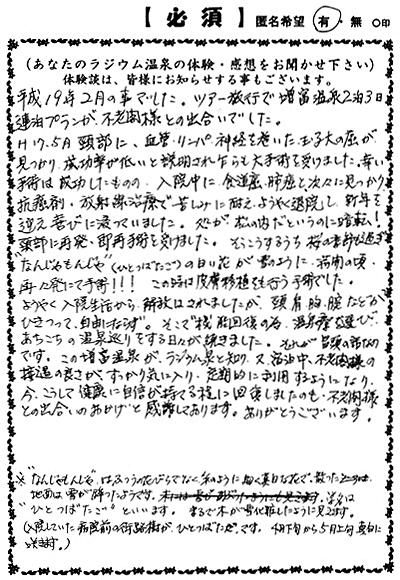 【必須】 匿名希望 有・無 ○印
(あなたのラジウム温泉の体験・感想をお聞かせ下さい)
体験談は、皆様にお知らせする事もございます。
平成19年2月の事でした。ツアー旅行で増富温泉2泊3日
連泊プランが不老閣様との出合いでした。
H17.5月 頸部に、血管・リンパ・神経を巻いた玉子大の癌が
見つかり、成功率が低いと説明されながらも大手術を受けました。幸い
手術は成功したものの、入院中に食道癌、肺癌と次々に見つかり
抗癌剤・放射線治療で苦しみに耐え、ようやく退院し、新年を
迎え喜びに浸っていました。処が松の内だというのに暗転!
頸部に再発・即再手術を受けました。そうこうするうち桜の季節が過ぎ
"なんじゃもんじゃ"(ひとつばたご)の白い花が雪のように満開の頃、
再々発にて手術!!! この時は皮膚移植も行う手術でした。
ようやく入院生活から解放はされましたが、頸、肩、胸、腕などが
ひきつって、自由にならず。そこで機能回復の為、温泉療を選び、
あちこちの温泉巡りをする日々が続きました。それが冒頭の部なの
です。この増富温泉がラジウム泉と知り、又、泊中、不老閣様の
接遇の良さがすっかり気に入り、定期的に利用するようになり、
今、こうして健康に自信が持てる程に回復しましたのも、不老閣様
との出合いのおかげと感謝しております。ありがとうございます。
※"なんじゃもんじゃ"はふつうの花びらでなく糸のように細く真白な花で、散った
地面は雪が降ったようです。学名は
"ひとつばたご"といいます。まるで木が雪化粧したように見えます。
(入院していた病院前の街路樹が、ひとつばたごです。4月下旬から5月上旬真白に
咲きます。)